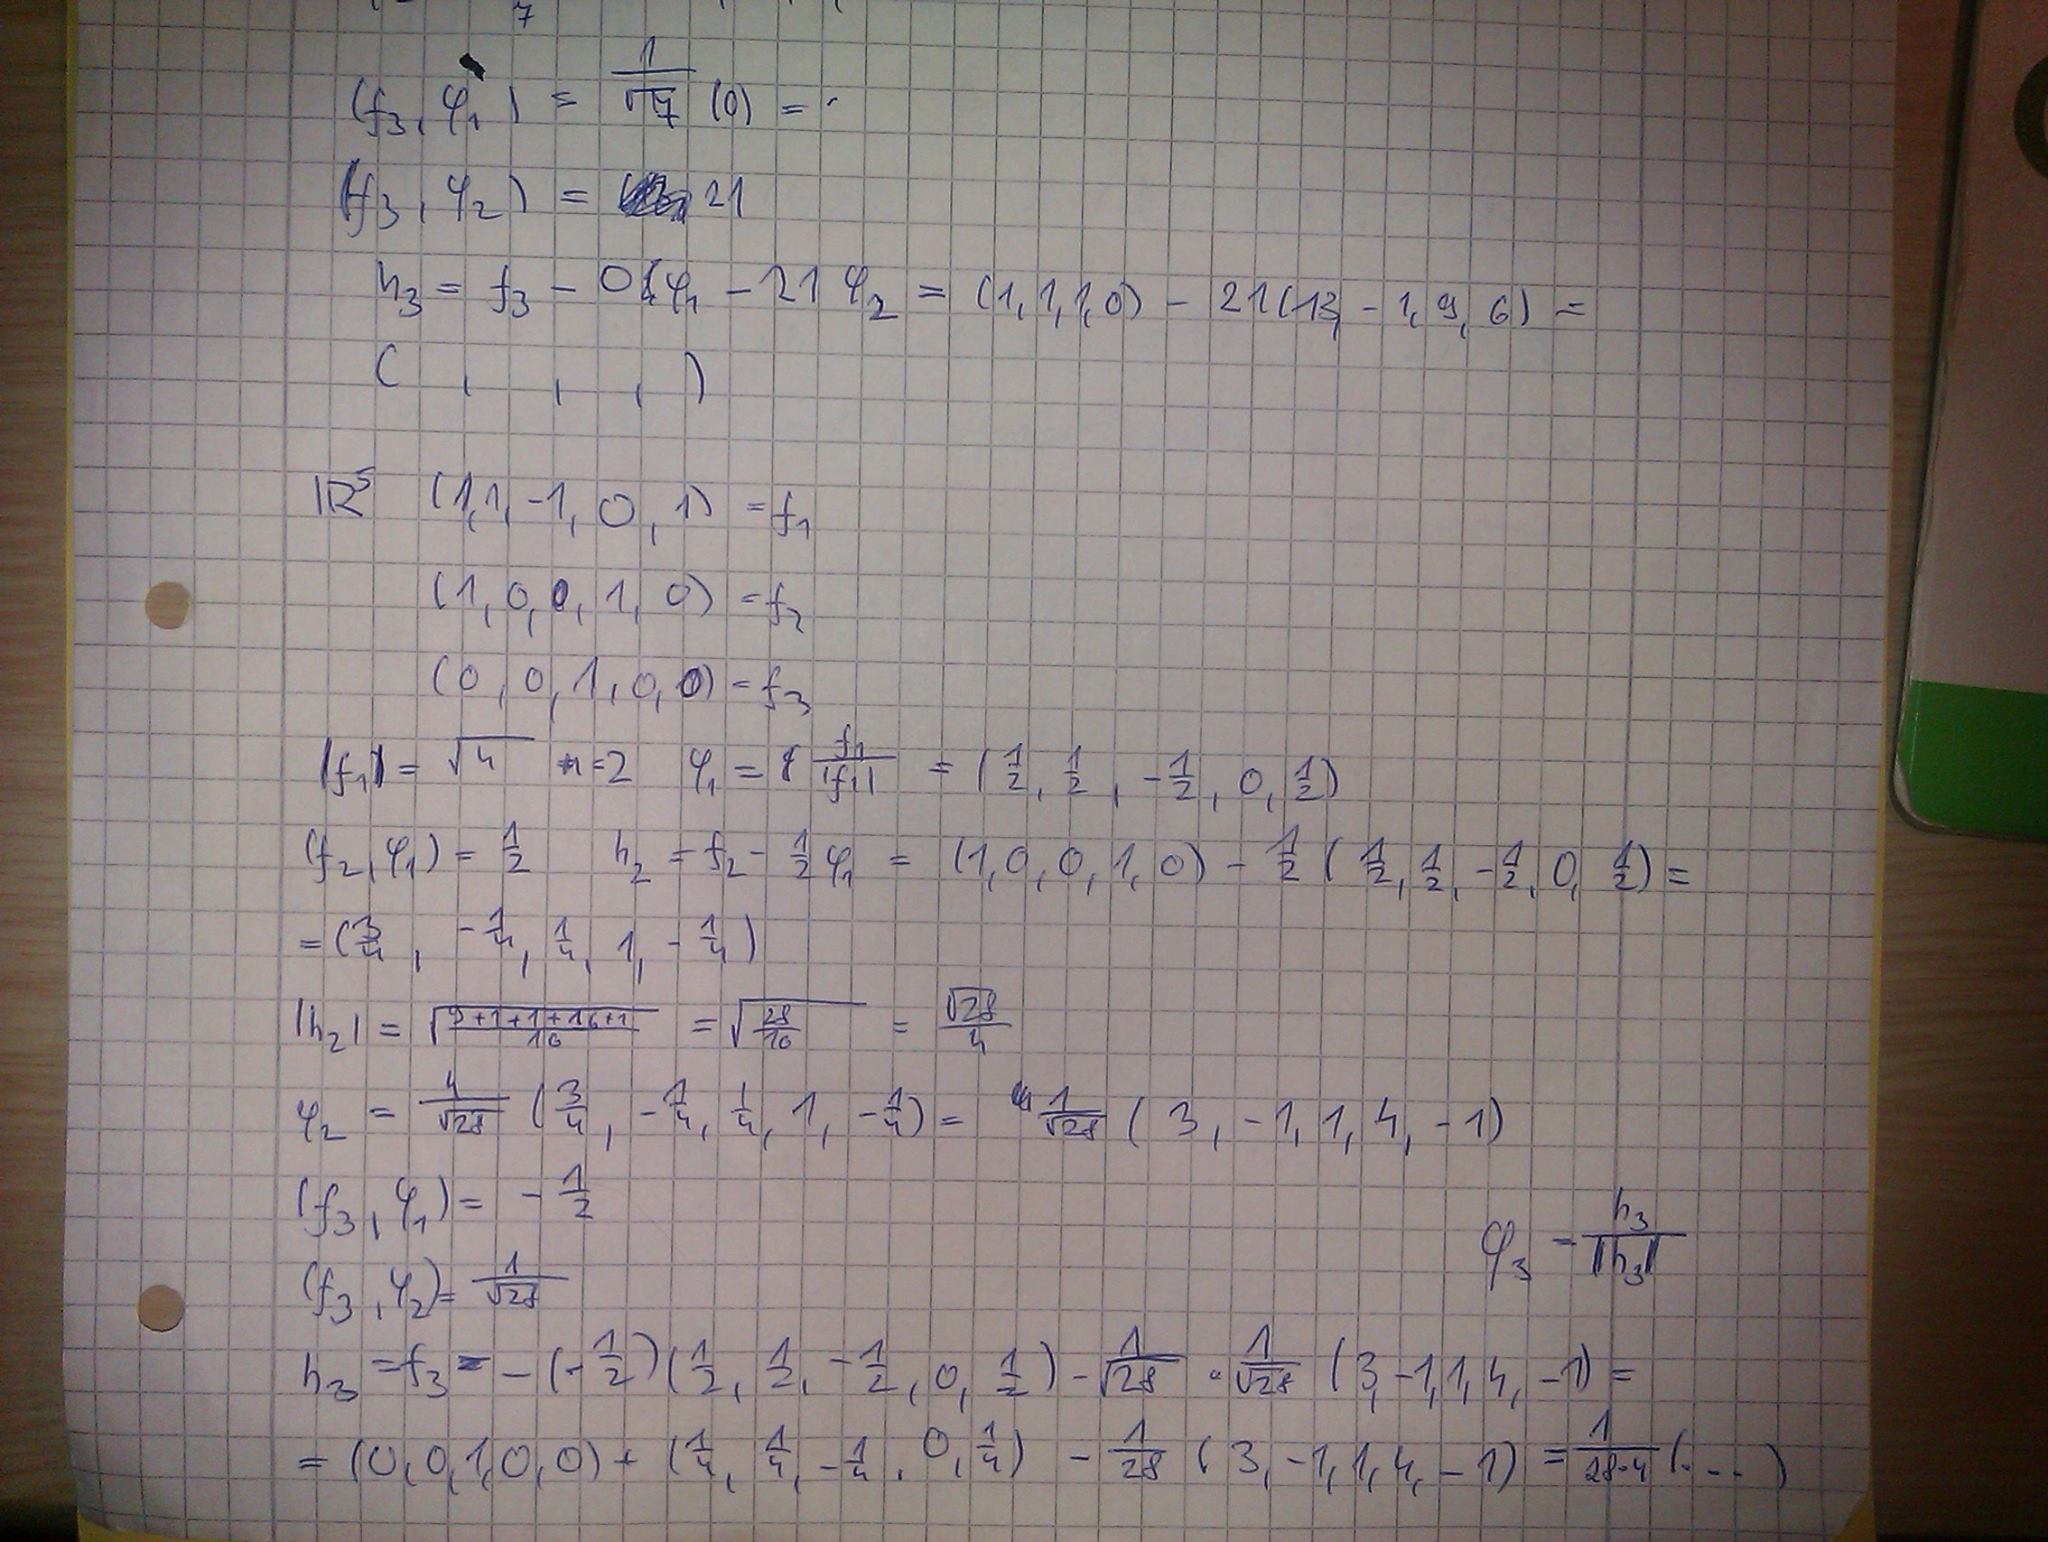 7
(f₃, φ₁) = 1/√7 (0) =
(f₃, φ₂) = 21
h₃ = f₃ - 0 φ₁ - 21 φ₂ = (1, 1, 1, 0) - 21(13, -1, 9, 6) =
( , , , )
ℝ⁵ (1, 1, -1, 0, 1) = f₁
(1, 0, 0, 1, 0) = f₂
(0, 0, 1, 0, 0) = f₃
|f₁| = √4 = 2 φ₁ = f₁/|f₁| = (1/2, 1/2, -1/2, 0, 1/2)
(f₂, φ₁) = 1/2 h₂ = f₂ - 1/2 φ₁ = (1, 0, 0, 1, 0) - 1/2 (1/2, 1/2, -1/2, 0, 1/2) =
= (3/4, -1/4, 1/4, 1, -1/4)
|h₂| = √((9+1+1+16+1)/16) = √(28/16) = √28/4
φ₂ = 4/√28 (3/4, -1/4, 1/4, 1, -1/4) = 1/√28 (3, -1, 1, 4, -1)
(f₃, φ₁) = -1/2
φ₃ = h₃/|h₃|
(f₃, φ₂) = 1/√28
h₃ = f₃ - (-1/2)(1/2, 1/2, -1/2, 0, 1/2) - 1/√28 · 1/√28 (3, -1, 1, 4, -1) =
= (0, 0, 1, 0, 0) + (1/4, 1/4, -1/4, 0, 1/4) - 1/28 (3, -1, 1, 4, -1) = 1/(28·4) (...)